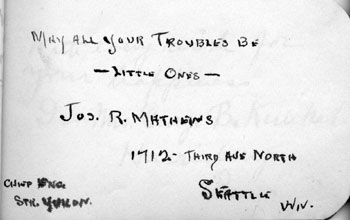 May All Your Troubles Be
— Little Ones —
Jos. R. Mathews
1712 - Third Ave North
Seattle
Wn.
Chief Eng.
Str. Yukon.